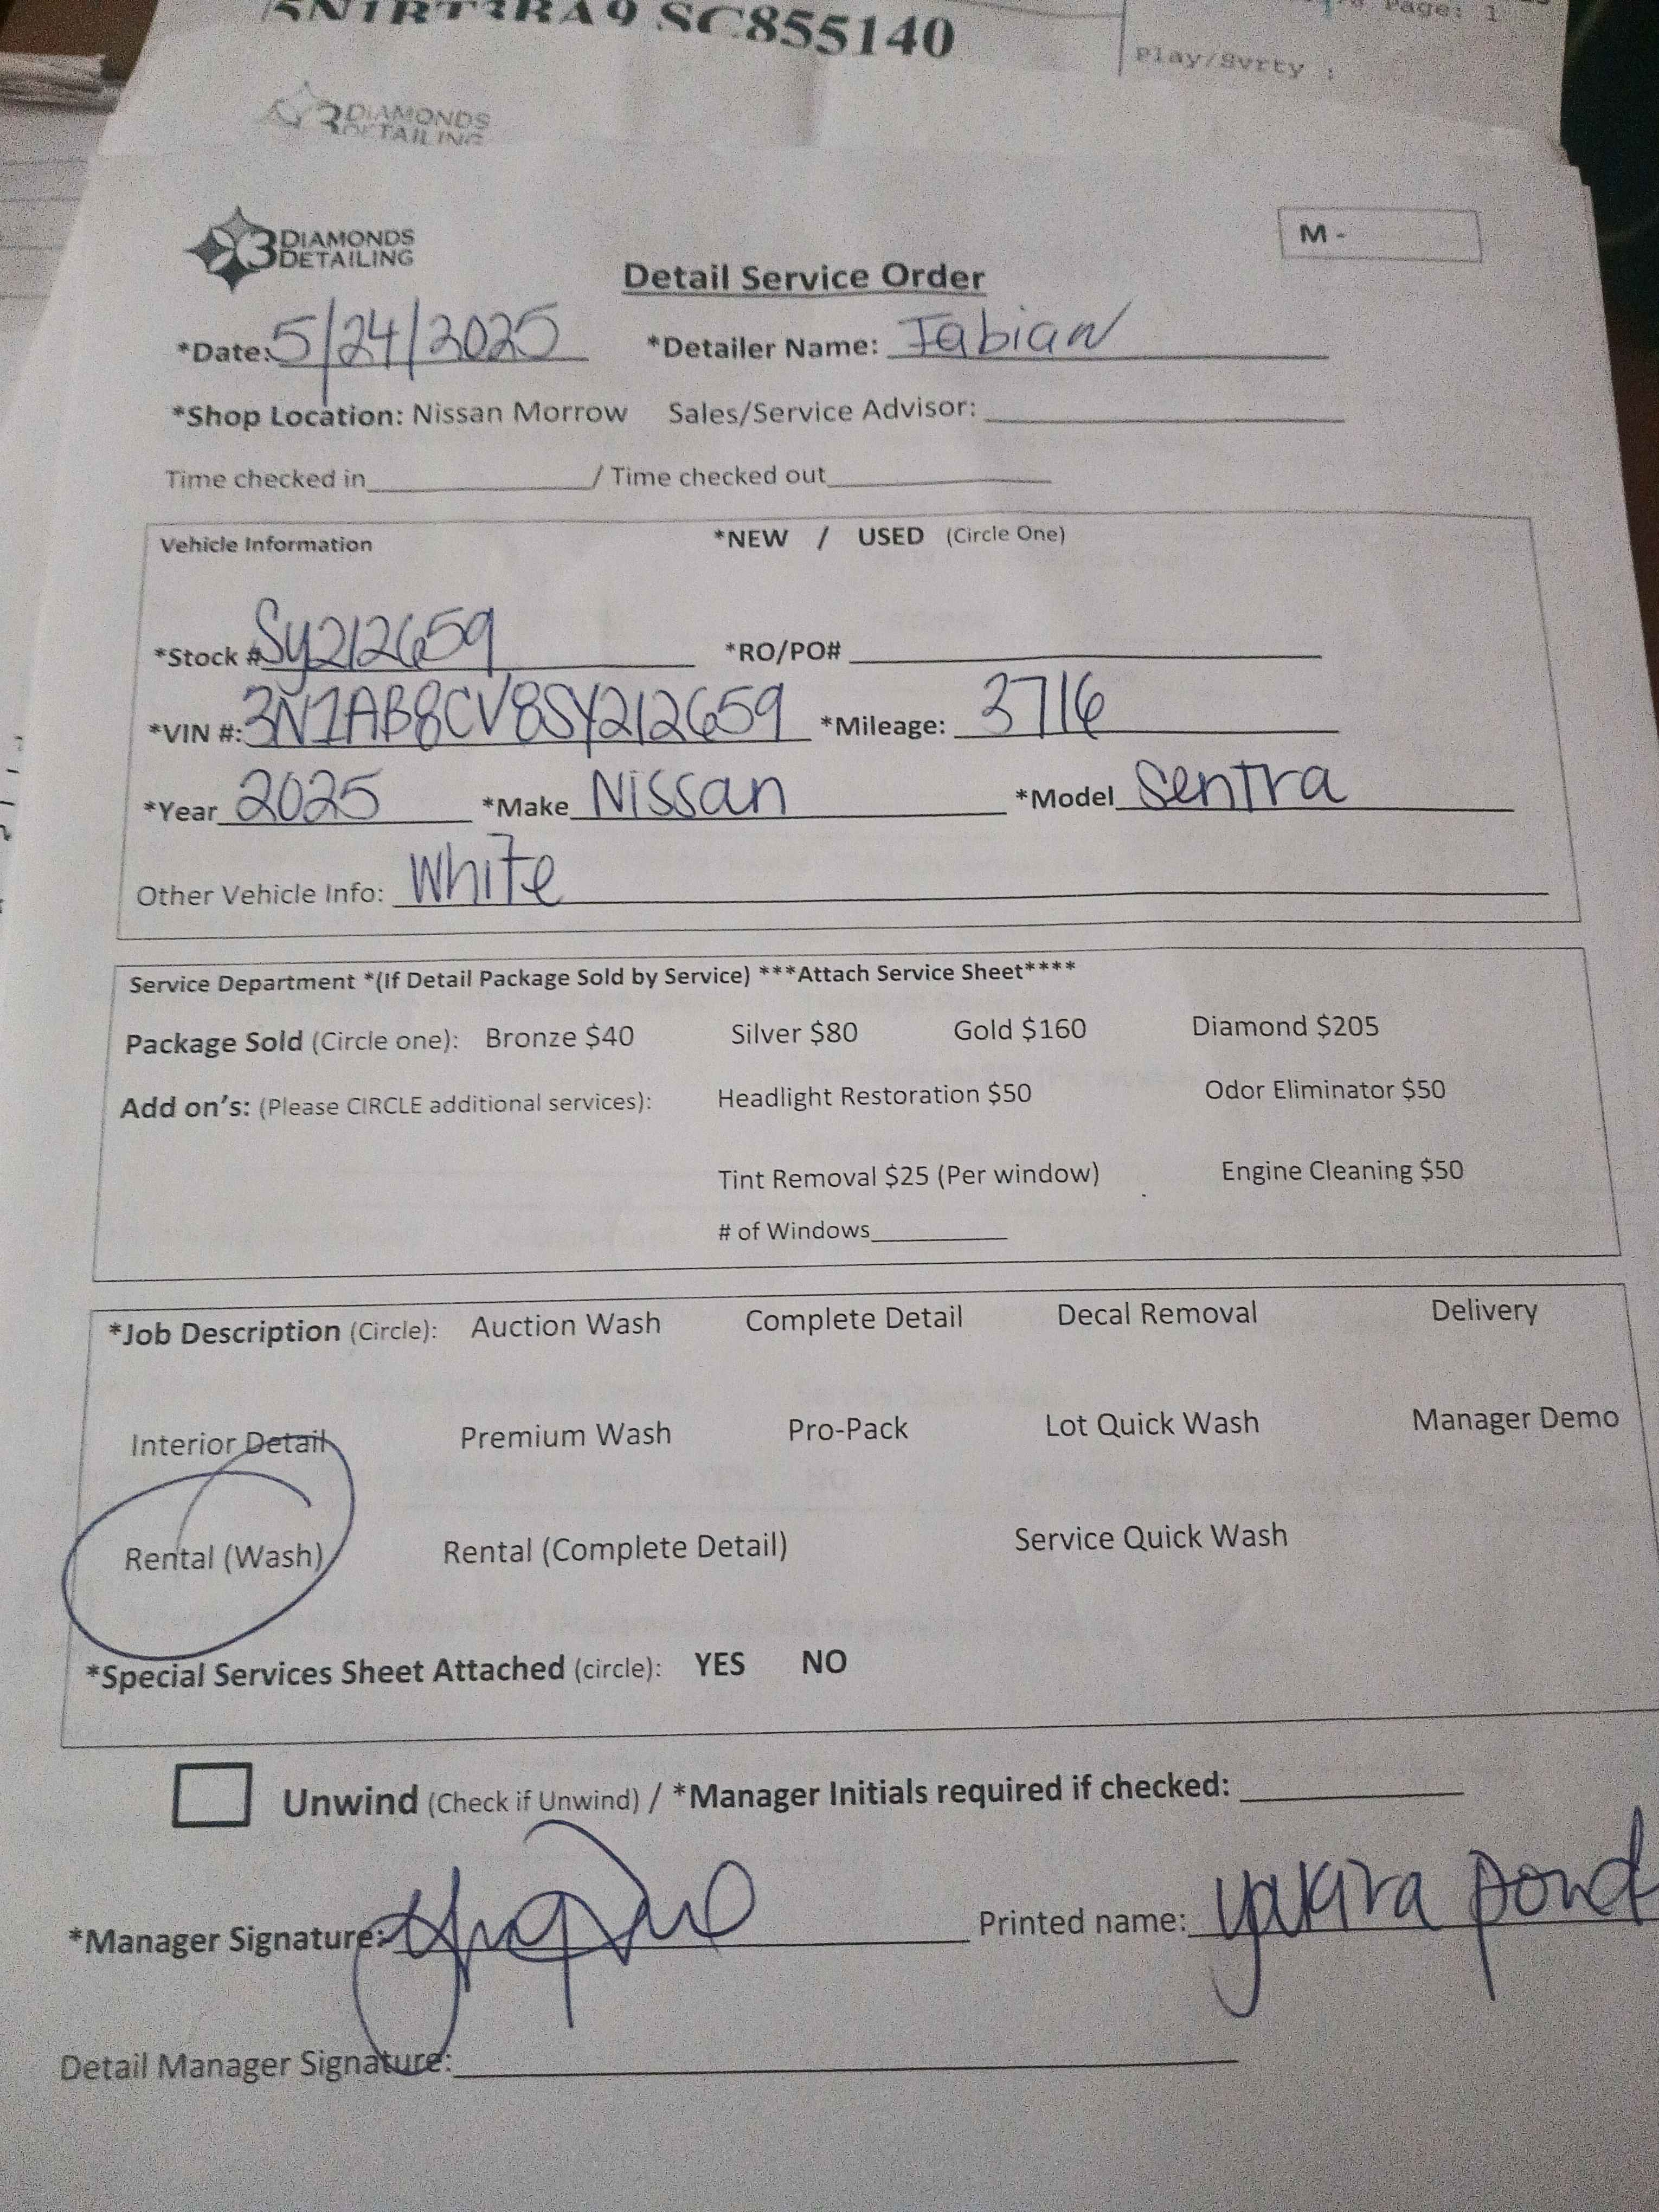 5N1BT3BA9 SC855140
Page: 1
Play/Svrty :
3 DIAMONDS
DETAILING
3 DIAMONDS
DETAILING
M -
Detail Service Order
*Date: 5/24/2025 *Detailer Name: Fabian
*Shop Location: Nissan Morrow Sales/Service Advisor:
Time checked in / Time checked out
Vehicle Information *NEW / USED (Circle One)
*Stock # SY212659 *RO/PO#
*VIN #: 3N1AB8CV8SY212659 *Mileage: 3716
*Year 2025 *Make Nissan *Model Sentra
Other Vehicle Info: White
Service Department *(If Detail Package Sold by Service) ***Attach Service Sheet****
Package Sold (Circle one): Bronze $40 Silver $80 Gold $160 Diamond $205
Add on's: (Please CIRCLE additional services): Headlight Restoration $50 Odor Eliminator $50
Tint Removal $25 (Per window) Engine Cleaning $50
# of Windows
*Job Description (Circle): Auction Wash Complete Detail Decal Removal Delivery
Interior Detail Premium Wash Pro-Pack Lot Quick Wash Manager Demo
Rental (Wash) Rental (Complete Detail) Service Quick Wash
*Special Services Sheet Attached (circle): YES NO
Unwind (Check if Unwind) / *Manager Initials required if checked:
*Manager Signature: Printed name: yakira pond
Detail Manager Signature: